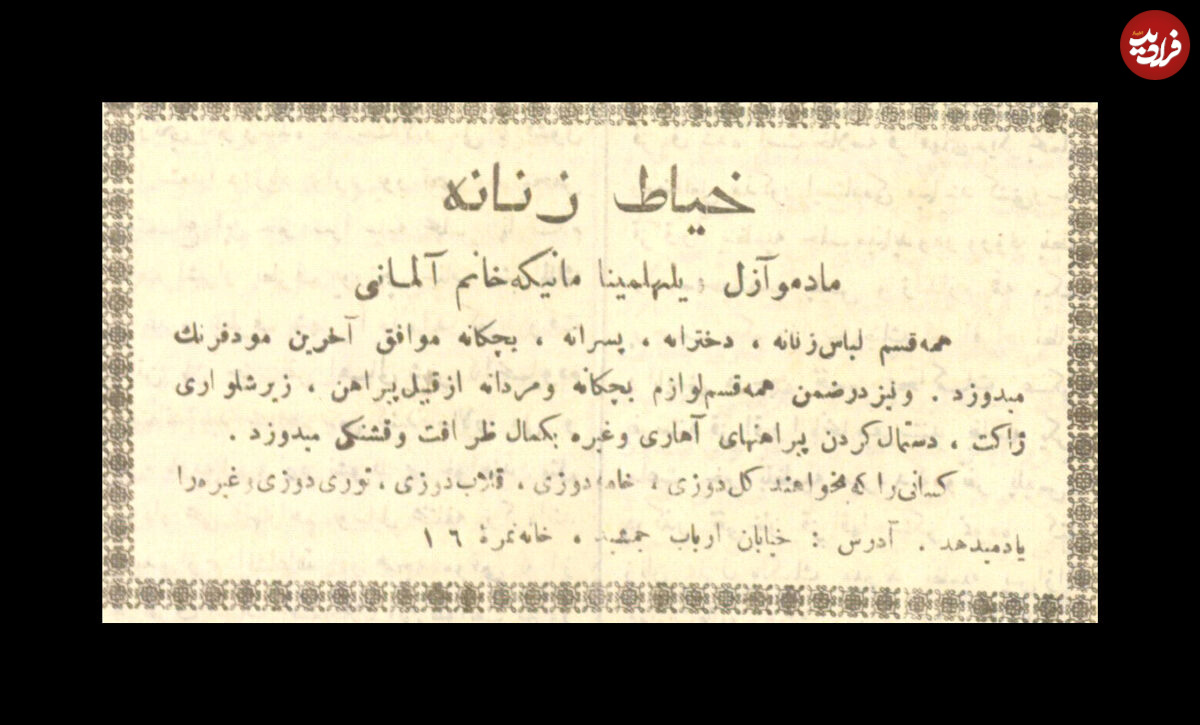 فرادید
اخبار
خیاط زنانه
مادموآزل ویلهلمینا مانیکه خانم آلمانی
همه قسم لباس زنانه ، دخترانه ، پسرانه ، بچکانه موافق آخرین مود فرنك
میدوزد . و نیز در ضمن همه قسم لوازم بچکانه و مردانه از قبیل پیراهن ، زیر شلواری
ژاکت ، دستمال کردن پیراهنهای آهاری وغیره بکمال ظرافت وقشنکی میدوزد .
کسانی را که بخواهند کل دوزی ، خامه دوزی ، قلاب دوزی ، توری دوزی وغیره را
یاد میدهد . آدرس : خیابان ارباب جمشید ، خانه نمرهٔ ۱٦